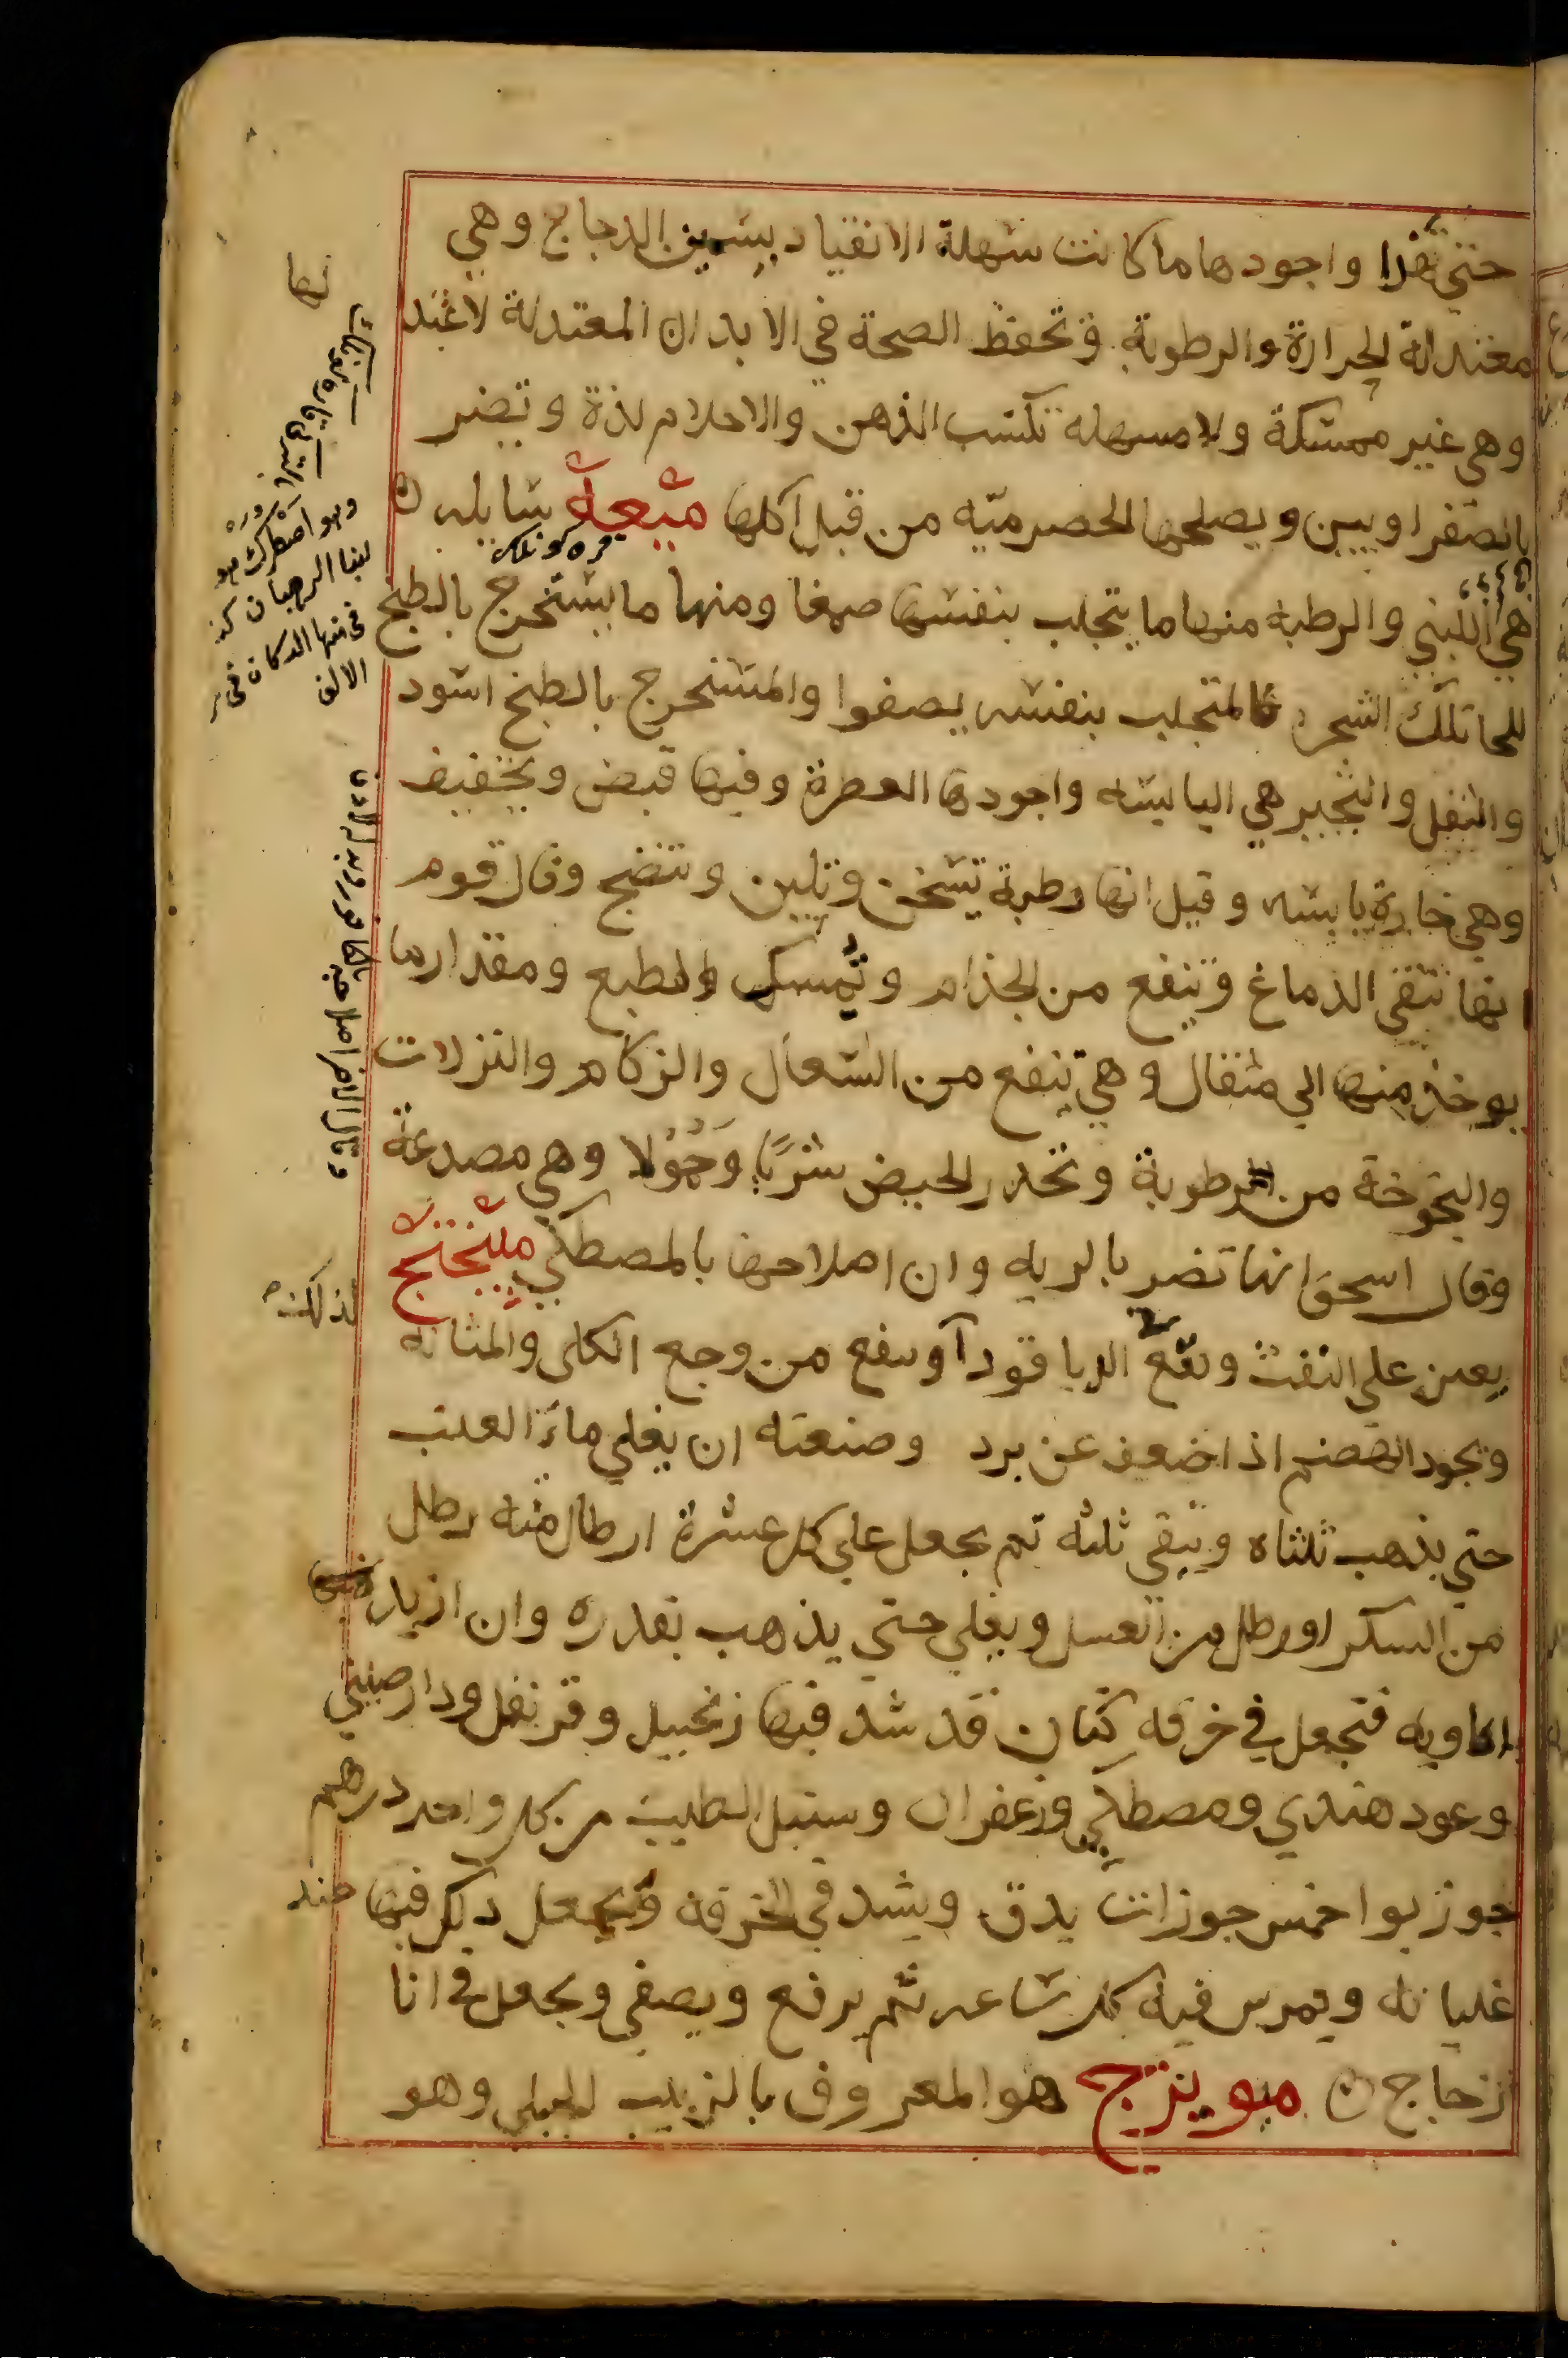 حتي تهرا واجودها ما كانت سهلة الانقياد بسمين الدجاج وهي
معتدلة الحرارة والرطوبة وتحفظ الصحة في الابدان المعتدلة لاغتد
وهي غير ممسكة ولا مسهله تكسب الذهن والاحلام لذة وتضر
بالصفراويين ويصلحها الحصرميه من قبل اكلها ميعة سايله
هي اللبني والرطبه منها ما يتجلب بنفسها صمغا ومنها ما يستخرج بالطبخ
للحا تلك الشجر فالمتجلب بنفسه يصفوا والمستخرج بالطبخ اسود
والثفل والثجير هي اليابسه واجودها العطرة وفيها قبض وتجفيف
وهي حارة يابسه وقيل انها رطبة تسخن وتلين وتنضج وقال قوم
انها تنقي الدماغ وتنفع من الجذام وتمسك الطبع ومقدار ما
يوخذ منها الي مثقال وهي تنفع من السعال والزكام والنزلات
والبحوحة من الرطوبة وتحدر الحيض شربًا وحمولا وهي مصدعة
وقال اسحق انها تضر بالريه وان اصلاحها بالمصطكي ميبختج
يعين علي النفث الدياقودا وينفع من وجع الكلى والمثانه
ويجود الهضم اذا ضعف عن برد وصنعته ان يغلي ماء العنب
حتي يذهب ثلثاه ويبقي ثلثه ثم يجعل علي كل عشرة ارطال منه رطل
من السكر او رطل من العسل ويغلي حتي يذهب بقدره وان ازيد
افاويه فتجعل في خرقه كتان قد شد فيها زنجبيل وقرنفل ودارصيني
وعود هندي ومصطكي وزعفران وسنبل الطيب من كل واحد درهم
جوزبوا خمس جوزات يدق ويشد في الخرقة ويجعل ذلك فيها عند
غليانه ويمرس فيه كل ساعه ثم يرفع ويصفي ويجعل في انا
زجاج ميويزج هو المعروف بالزبيب الجبلي وهو